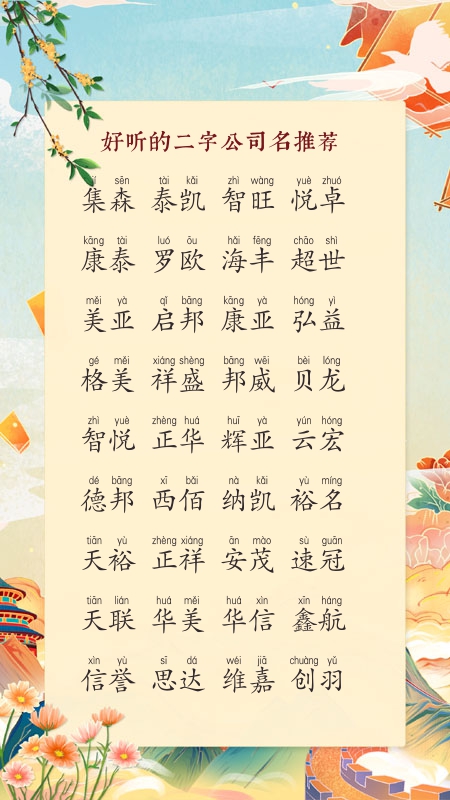 好听的二字公司名推荐
sēn tài kǎi zhì wàng yuè zhuó
集森 泰凯 智旺 悦卓
kāng tài luó ōu hǎi fēng chāo shì
康泰 罗欧 海丰 超世
měi yà qǐ bāng kāng yà hóng yì
美亚 启邦 康亚 弘益
gé měi xiáng shèng bāng wēi bèi lóng
格美 祥盛 邦威 贝龙
zhì yuè zhèng huá huī yà yún hóng
智悦 正华 辉亚 云宏
dé bāng xī bǎi nà kǎi yù míng
德邦 西佰 纳凯 裕名
tiān yù zhèng xiáng ān mào sù guān
天裕 正祥 安茂 速冠
tiān lián huá měi huá xìn xīn háng
天联 华美 华信 鑫航
xìn yù sī dá wéi jiā chuàng yǔ
信誉 思达 维嘉 创羽